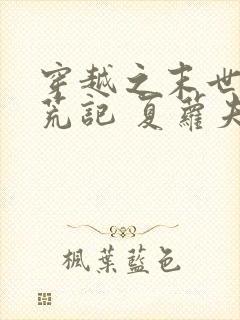 穿越之末世
荒記 夏蘿夫
楓葉藍色